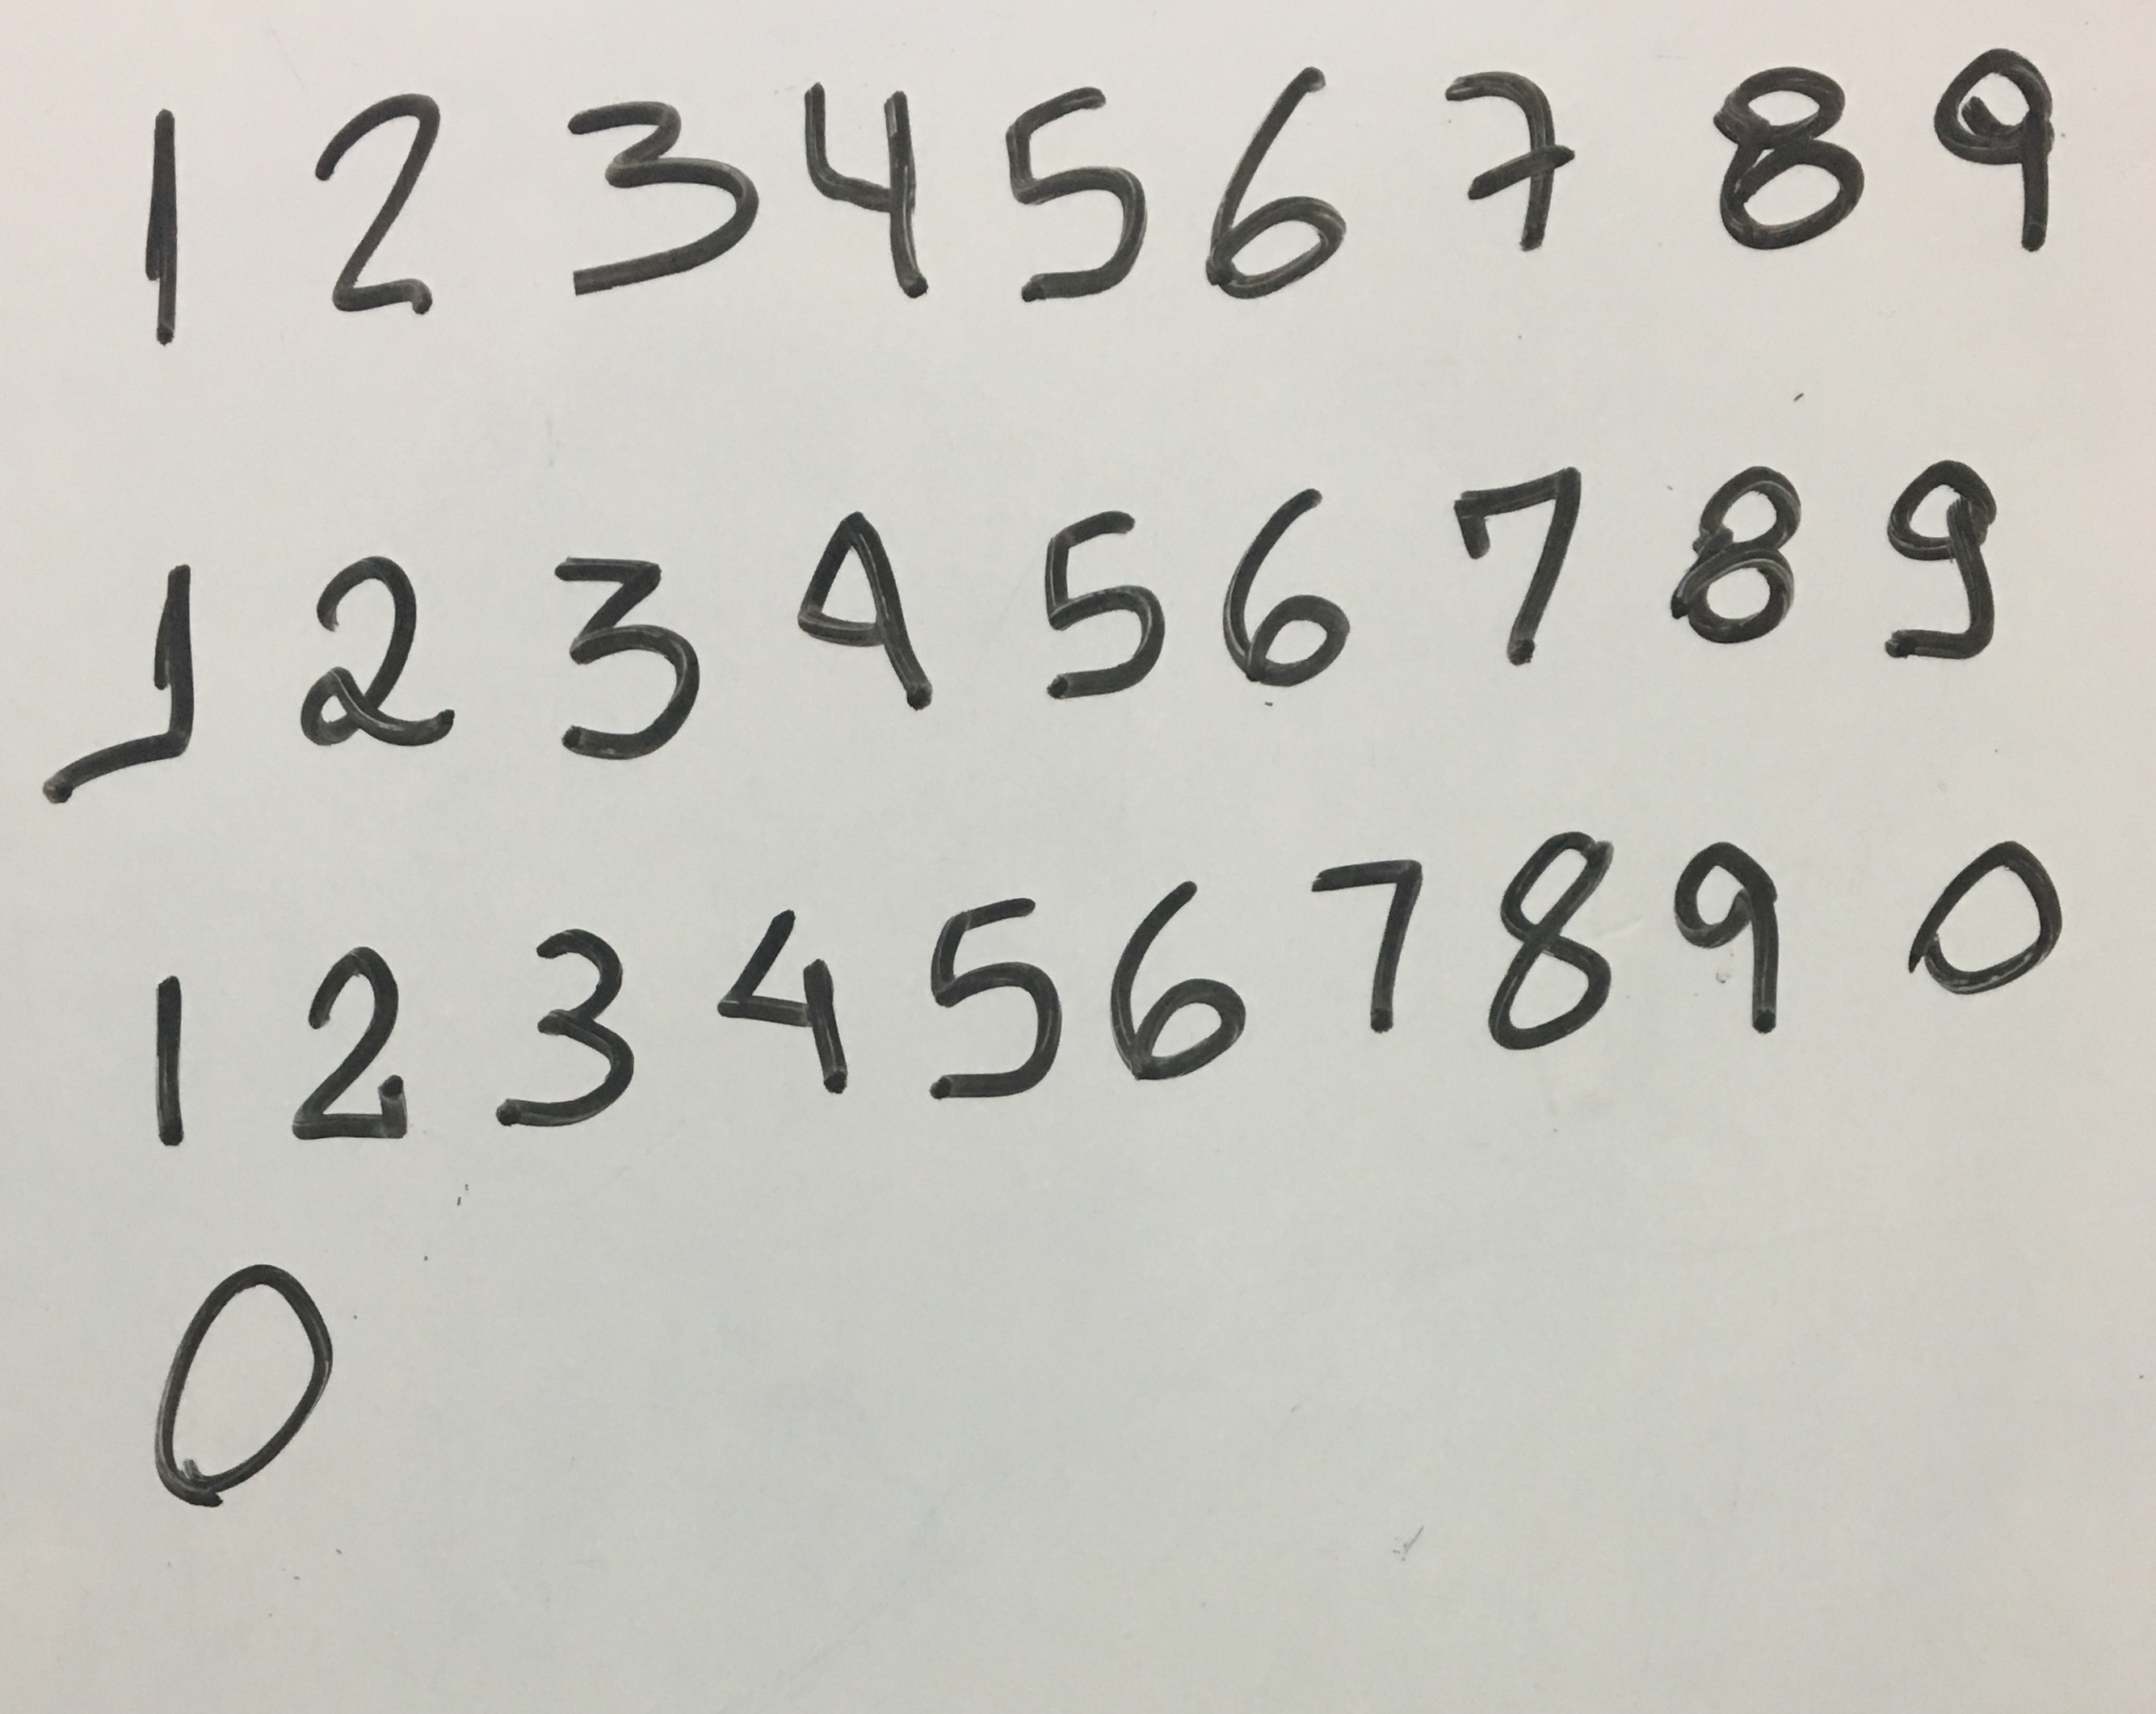 1 2 3 4 5 6 7 8 9
1 2 3 4 5 6 7 8 9
1 2 3 4 5 6 7 8 9 0
0